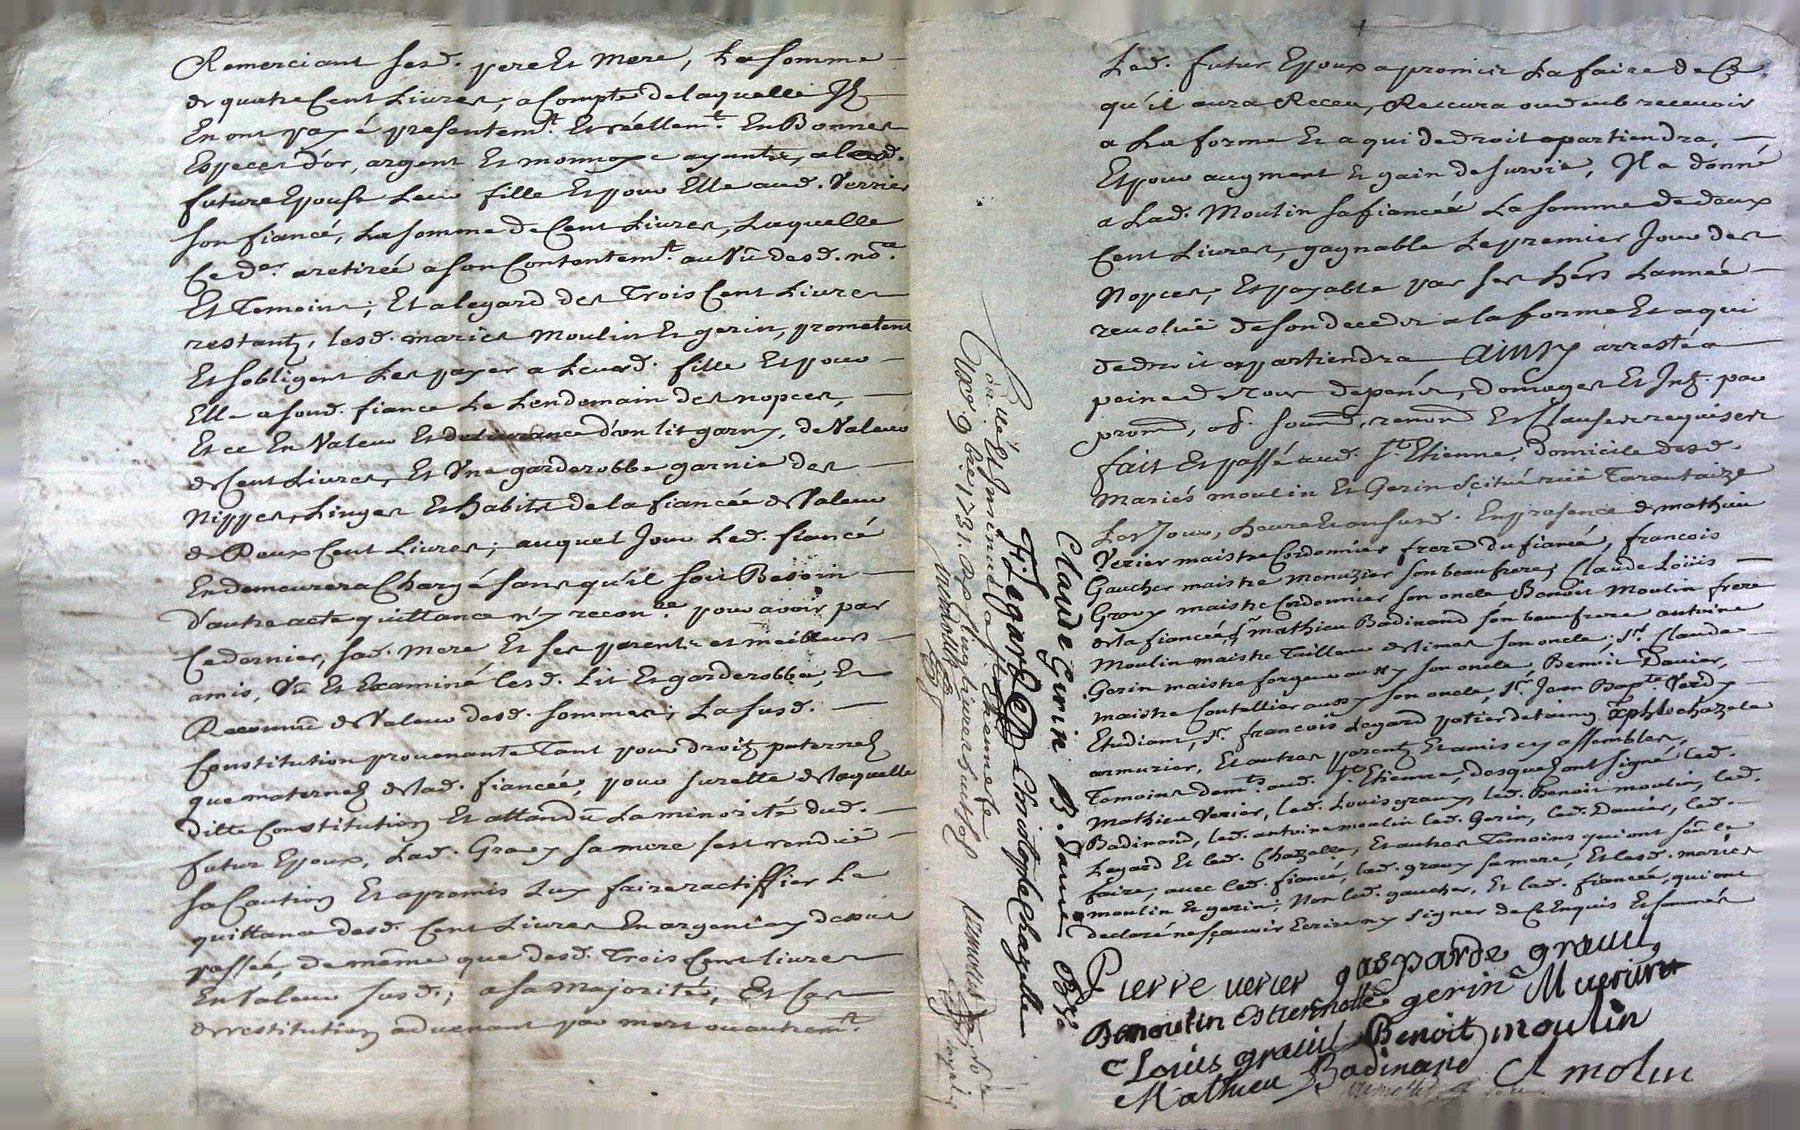 Remerciant sesd. pere Et Mere, La somme
de quatre Cent Livres, a Compte de laquelle Ilz
En ont payé presentemt. Et réellemt. En Bonnes
Especes d'or, argent Et monnoye ayante, a lad.
future Epouse Leur fille Et pour Elle aud. Verrier
son fiancé, La somme de Cent Livres, Laquelle
Ce der. a retirée a son Contentemt. au Vû desd. nore.
Et Temoins; Et a legard des Trois Cent Livres
restantz, lesd. mariés Moulin Et gerin, prometent
Et sobligent Les payer a Leurd. fille Et pour
Elle a sond. fiance Le Lendemain des nopces,
Et ce En Valeur Et d'un lit garny, de Valeur
de Cent Livres, Et Une garderobbe garnie des
Nippes, Linges Et habits de la fiancée de Valeur
de Deux Cent Livres; auquel Jour Led. fiancé
En demeurera Chargé sans qu'il soit Besoin
d'autre acte quittance n'y recon.ce pour avoir par
Ce dernier, sad. mere Et ses parents et meilleurs
amis, Vû Et Examiné lesd. Lit Et garderobbe, Et
Reconnû de Valeur desd. sommes; La susd.
Constitution provenante Tant pour droitz paternelz
que maternelz de lad. fiancée, pour surette de laquelle
ditte Constitution Et attandû La minorité dud.
futur Epoux, Lad. Gravy sa mere sest rendüe
sa Caution Et a promis Luy faire ractiffier La
quittance desd. Cent Livres En argent cy dessus
passée, de même que desd. Trois Cent livres
En Valeur susd.; a sa Majorité; Et Cas
de restitution advenant par mort ou autremt.
Led. futur Epoux a promis La faire de Ce
qu'il aura Receu, Recevra ou deub recevoir
a La forme Et a qui de droit apartiendra,
Et pour augment Et gain de survie, Il a donné
a Lad. Moulin sa fiancée La somme de deux
Cent Livres, gagnable Le premier Jour des
Nopces, Et payable par ses hérs L'année
revolüe de son deceds a la forme Et a qui
de droit appartiendra ainsy arresté a
peine de Tous depens, domages Et Intz. par
prom., of. soum., renon. Et Clauses requises
fait Et passé aud. St. Etienne, domicile desd.
Mariés moulin Et Gerin scitué ruë Tarantaize
Les Jour, heure Et an susd. En presence de mathieu
Verier maistre Cordonnier frere du fiancé, francois
Gaucher maistre menuzier son beaufrere, Claude Loüis
Gravy maistre Cordonnier son oncle Benoit Moulin frere
de la fiancée, Sr. mathieu Badinand son beaufrere antoine
Moulin maistre Tailleur de limes son oncle, Sr. Claude
Gerin maistre forgeur aussy son oncle, Benoit Davier,
maistre Coutellier aussy son oncle, Sr. Jean Bapte. Verdy
Etudiant, Sr. francois Legard potier detaing Xphle chazele
armurier, Et autres parentz Et amis cy assembles,
Temoins demts. aud. St. Etienne, desquelz ont signé led.
Mathieu Verier, led. Louis gravy, led. Benoit moulin, led.
Badinand, led. antoine moulin led. Gerin, led. Davier, led.
Legard Et led. Chazelle, Et autres Temoins qui ont scû le
faire, avec led. fiancé, lad. gravy sa mere, Et lesd. mariés
moulin Et gerin; Non led. gaucher, Et lad. fiancée, qui ont
declaré ne scavoir Ecrire ny signer de Ce Enquis Et sommés
Pierre verier gasparde gravil
B moulin Estiennotte gerin M verier
Louis gravil Benoit moulin
Mathieu Badinand A molin
Claude Gerin B. Davier
F. Legard Christophle Chazelle
Collé Et Insinué a St. Etienne le
9 bre 1731.